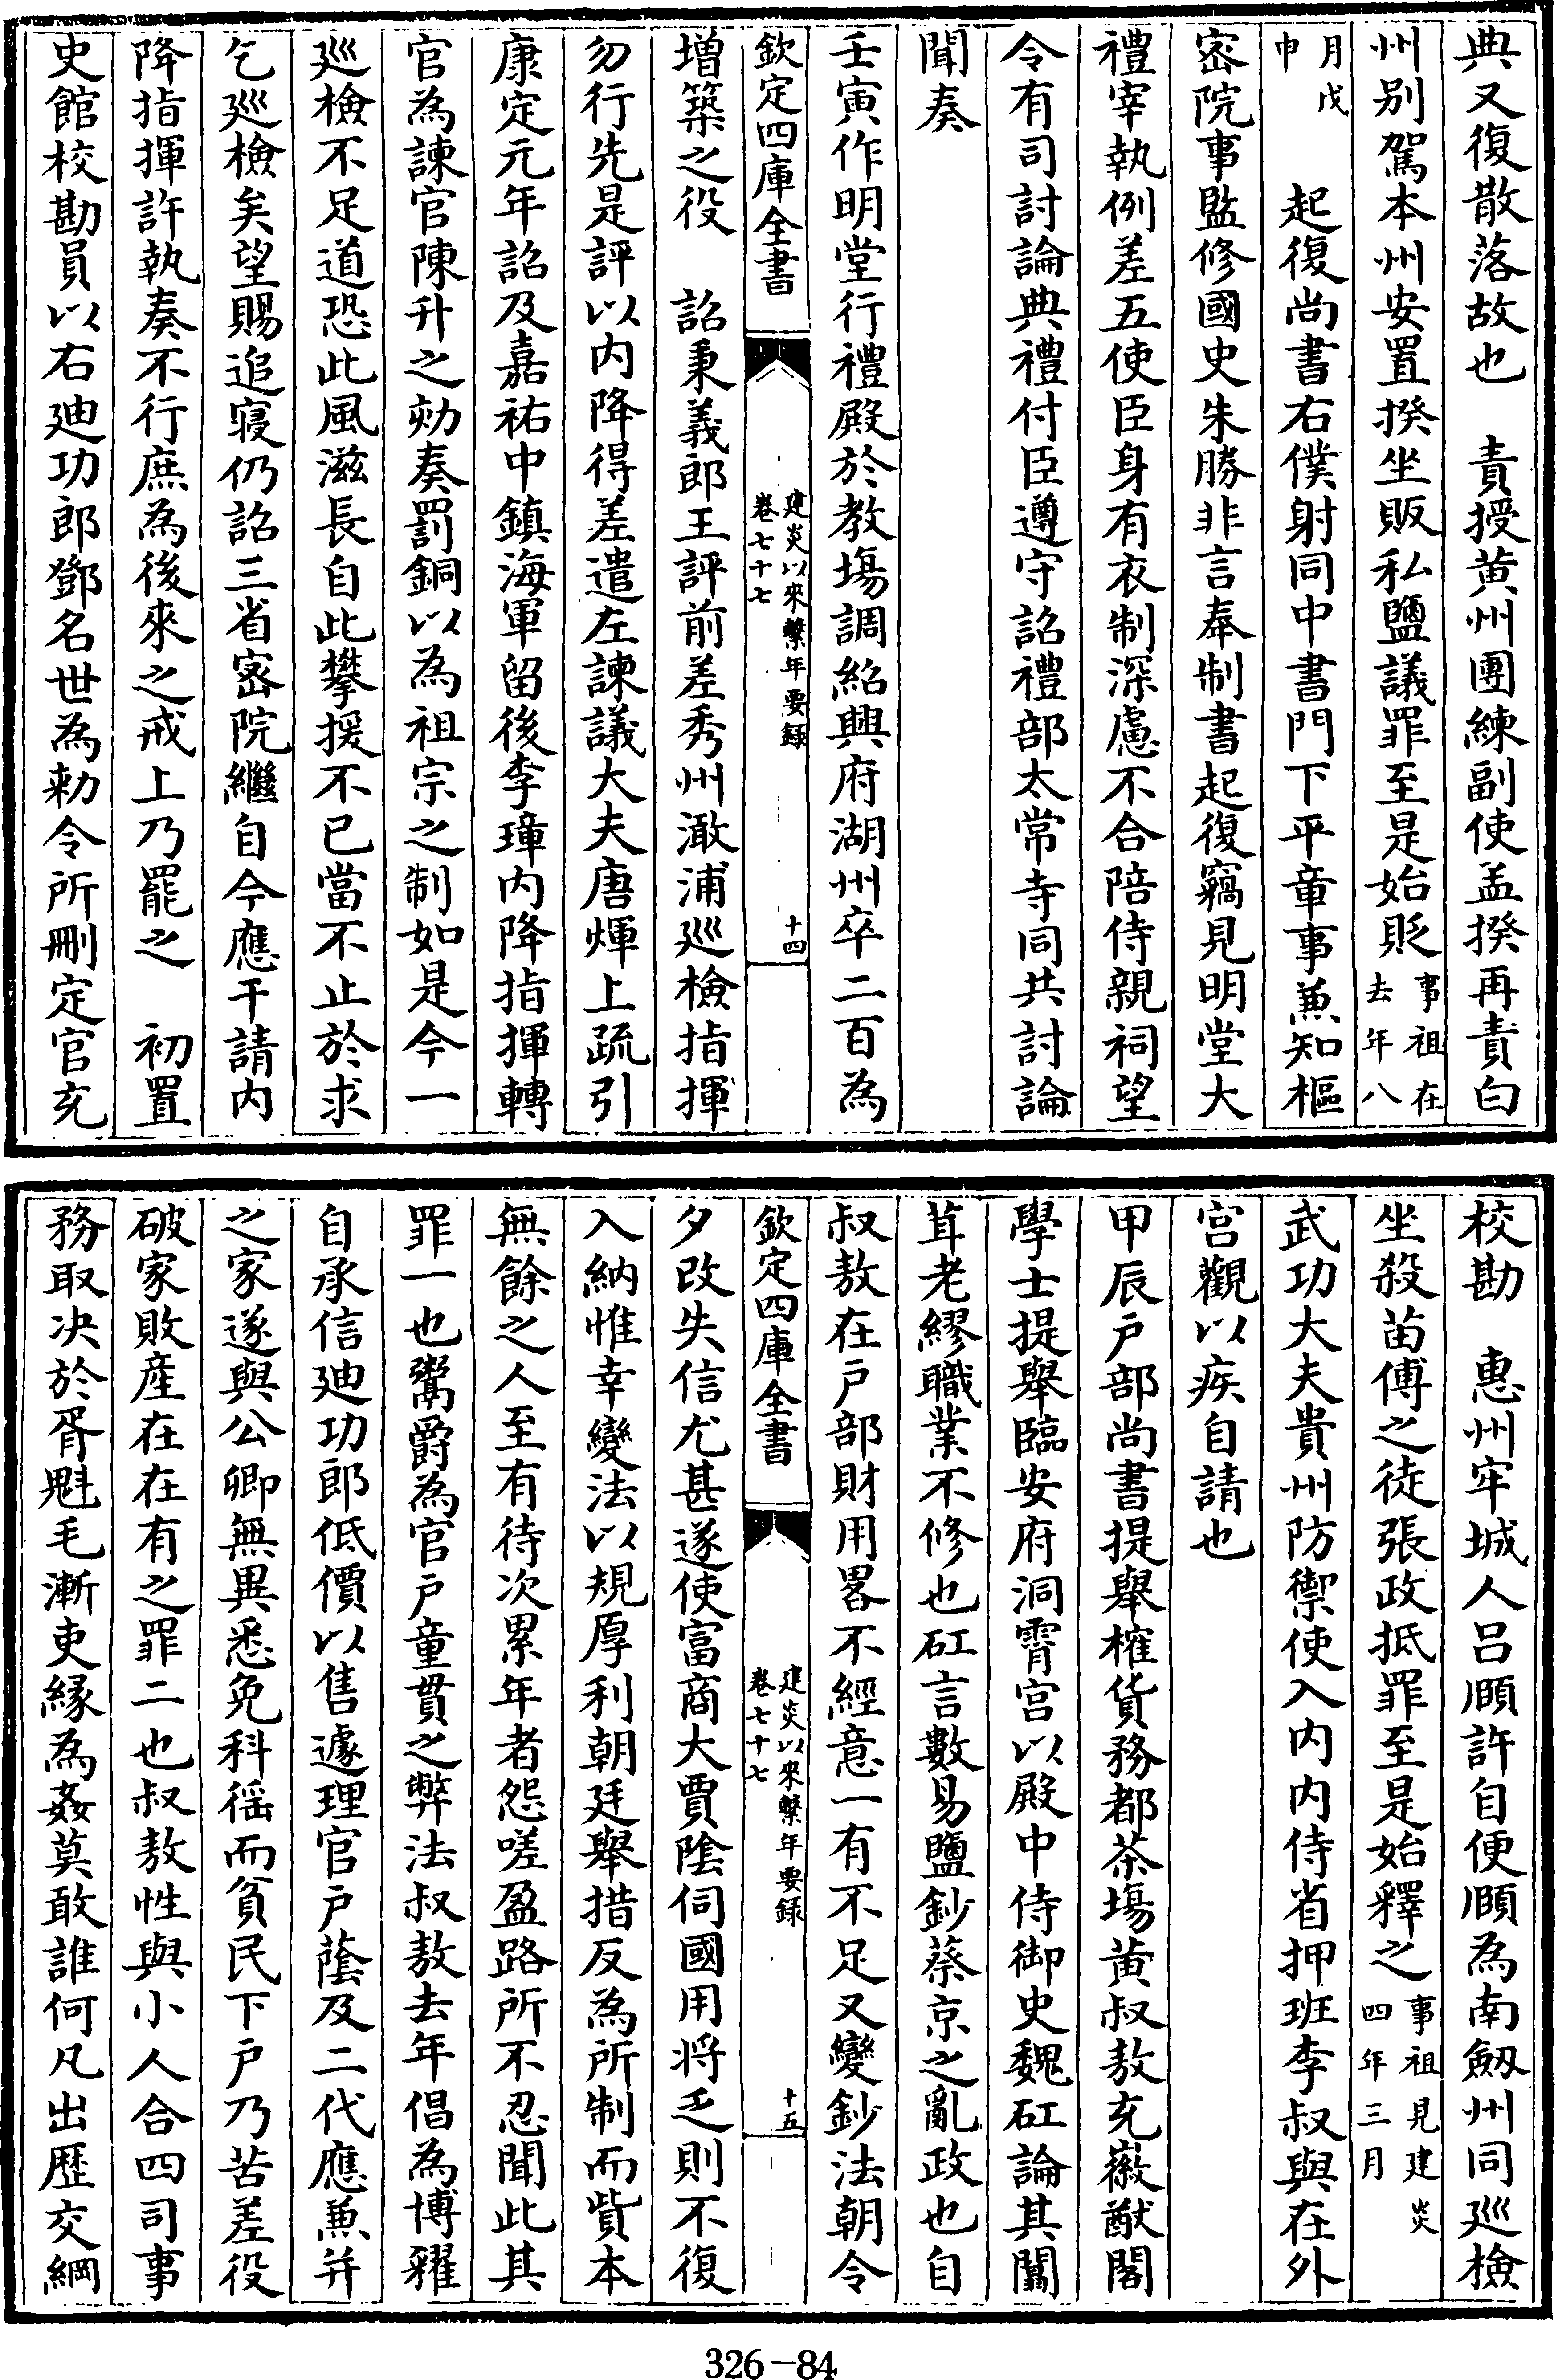 典又復散落故也　責授黄州團練副使孟揆再責白
州别駕本州安置揆坐販私鹽議罪至是始貶事祖在去年八
月戊申　起復尚書右僕射同中書門下平章事兼知樞
密院事監修國史朱勝非言奉制書起復竊見明堂大
禮宰執例差五使臣身有衣制深慮不合陪侍親祠望
令有司討論典禮付臣遵守詔禮部太常寺同共討論
聞奏
壬寅作明堂行禮殿於教塲調紹興府湖州卒二百為
欽定四庫全書　建炎以來繫年要録卷七十七　十四
增築之役　詔秉義郎王評前差秀州澉浦廵檢指揮
勿行先是評以内降得差遣左諫議大夫唐煇上疏引
康定元年詔及嘉祐中鎮海軍留後李璋内降指揮轉
官為諫官陳升之劾奏罰銅以為祖宗之制如是今一
廵檢不足道恐此風滋長自此攀援不已當不止於求
乞廵檢矣望賜追寢仍詔三省密院繼自今應干請内
降指揮許執奏不行庶為後來之戒上乃罷之　初置
史館校勘員以右廸功郎鄧名世為勅令所刪定官充
校勘　惠州牢城人呂願許自便願為南劔州同廵檢
坐殺苗傅之徒張政抵罪至是始釋之事祖見建炎四年三月
武功大夫貴州防禦使入内内侍省押班李叔與在外
宫觀以疾自請也
甲辰户部尚書提舉榷貨務都茶塲黄叔敖充徽猷閣
學士提舉臨安府洞霄宫以殿中侍御史魏矼論其闒
茸老繆職業不修也矼言數易鹽鈔蔡京之亂政也自
叔敖在户部財用畧不經意一有不足又變鈔法朝令
欽定四庫全書　建炎以來繫年要録卷七十七　十五
夕改失信尤甚遂使富商大賈陰伺國用將乏則不復
入納惟幸變法以規厚利朝廷舉措反為所制而貲本
無餘之人至有待次累年者怨嗟盈路所不忍聞此其
罪一也鬻爵為官户童貫之弊法叔敖去年倡為博糴
自承信廸功郎低價以售遽理官户蔭及二代應兼并
之家遂與公卿無異悉免科徭而貧民下户乃苦差役
破家敗産在在有之罪二也叔敖性與小人合四司事
務取決於胥魁毛漸吏縁為姦莫敢誰何凡出歴交綱
326-84